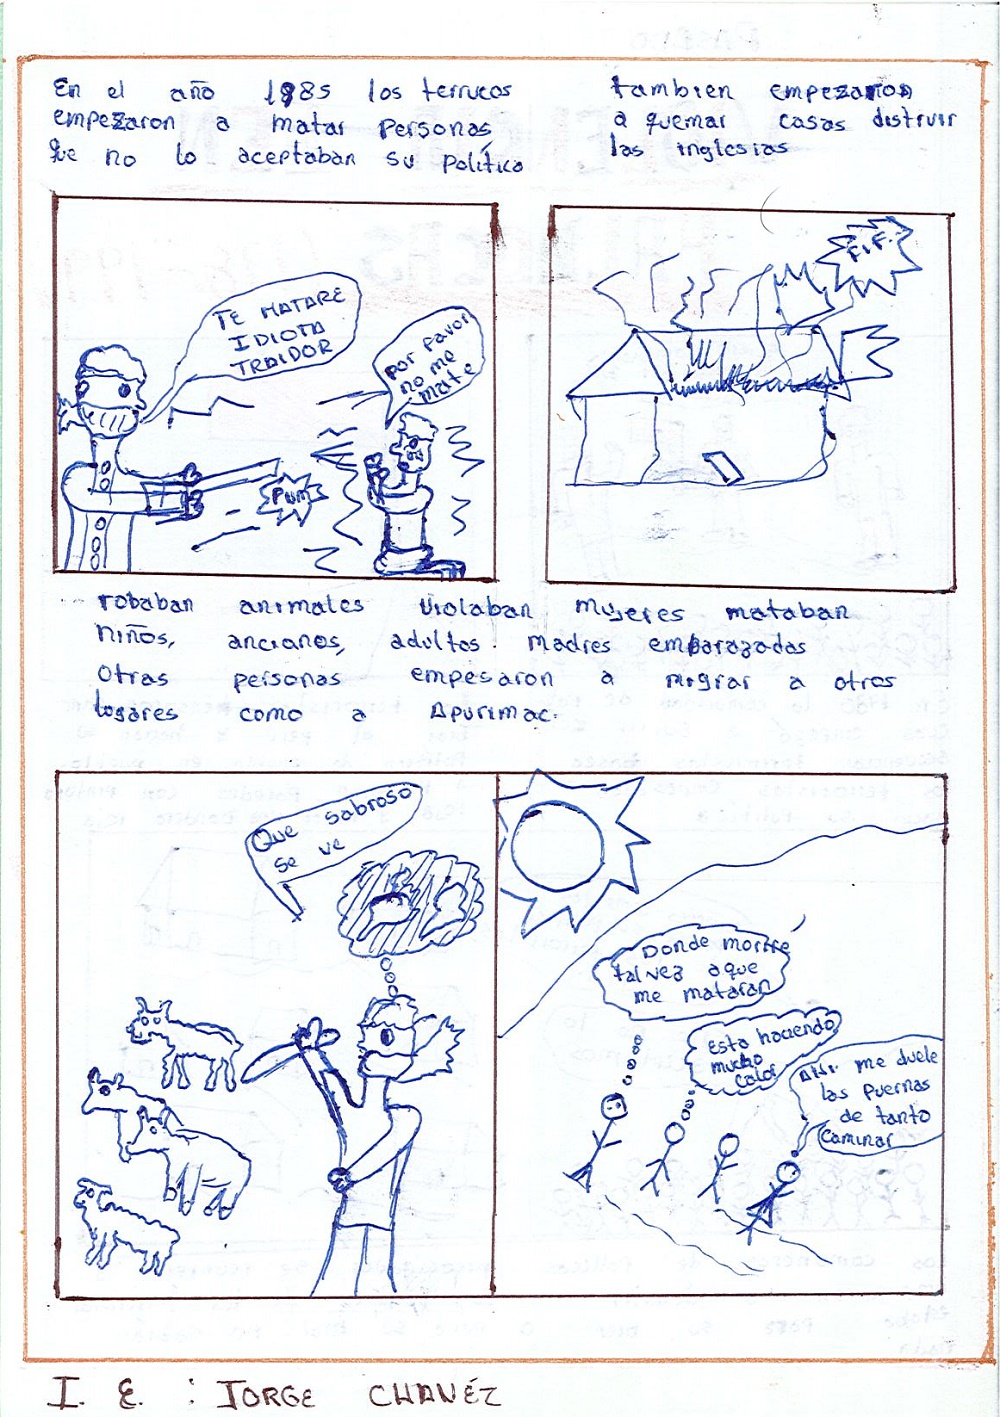 En el año 1985 los terrucos
empezaron a matar Personas
que no lo aceptaban su Político
tambien empezaron
a quemar casas distruir
las inglesias
TE MATARE
IDIOTA
TRAIDOR
por favor
no me
mate
PUM
F.F.
robaban animales violaban mujeres mataban
niños, ancianos, adultos. madres embarazadas
Otras personas empesaron a migrar a otros
lugares como a Apurimac.
Que sabroso
se ve
Donde morire
tal vez aque
me mataran
Esta haciendo
mucho
calor
me duele
las piernas
de tanto
caminar
I. E. : JORGE CHAVÉZ